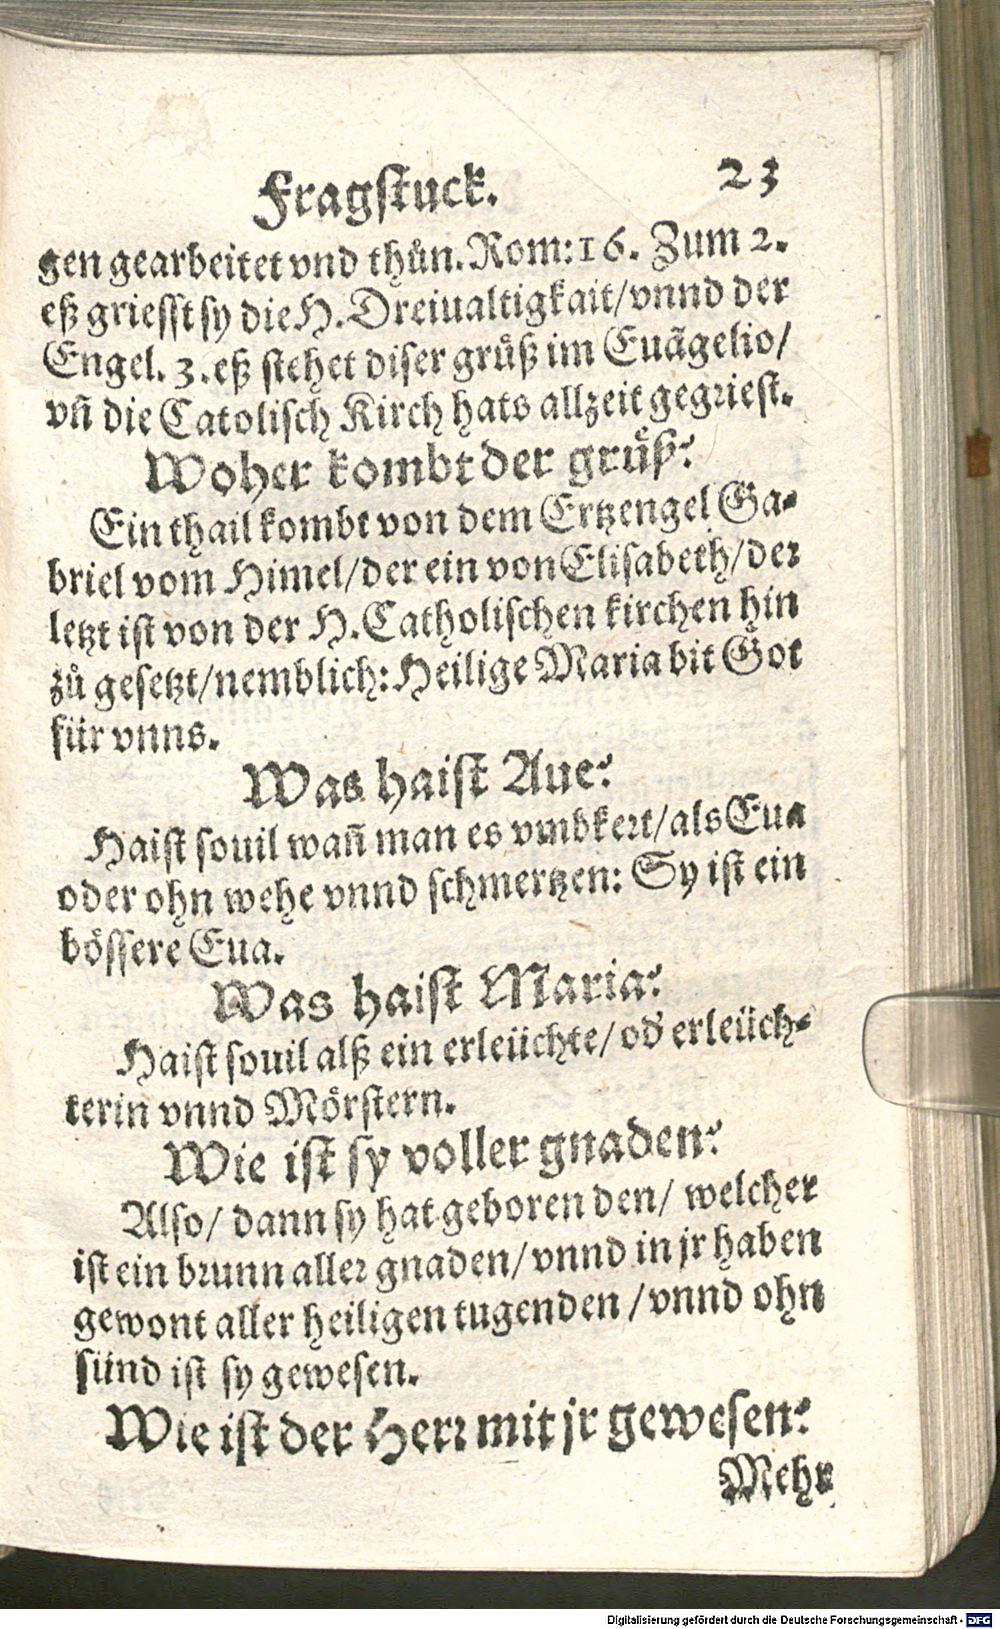 Fragſtuck. 23
gen gearbeitet vnd thůn. Rom: 16. Zum 2.
eß grieſſt ſy die H. Dreiualtigkait/ vnnd der
Engel. 3. eß ſtehet diſer grůß im Euāgelio/
vñ die Catoliſch Kirch hats allzeit gegrieſt.
Woher kombt der grůß?
Ein thail kombt von dem Ertzengel Ga-
briel vom Himel/ der ein von Eliſabeth/ der
letzt iſt von der H. Catholiſchen kirchen hin
zů geſetzt/ nemblich: Heilige Maria bit Got
für vnns.
Was haiſt Aue?
Haiſt ſouil wañ man es vmbkert/ als Eua
oder ohn wehe vnnd ſchmertzen: Sy iſt ein
böſſere Eua.
Was haiſt Maria?
Haiſt ſouil alß ein erleüchte/ od̕ erleüch-
terin vnnd Mörſtern.
Wie iſt ſy voller gnaden?
Alſo/ dann ſy hat geboren den/ welcher
iſt ein brunn aller gnaden/ vnnd in jr haben
gewont aller heiligen tugenden / vnnd ohn
ſünd iſt ſy geweſen.
Wie iſt der Herr mit jr geweſen?
Mehr
Digitalisierung gefördert durch die Deutsche Forschungsgemeinschaft - DFG